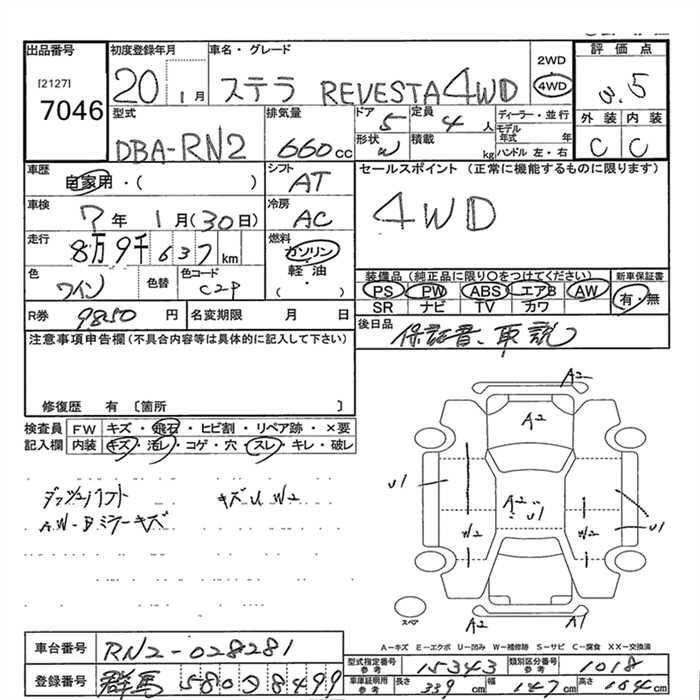 出品番号 初度登録年月 車名・グレード 評価点
[2127] 20年 1月 ステラ REVESTA 4WD 2WD 4WD 3.5
7046
型式 排気量 ドア 5 定員 4人 ディーラー・並行 外装 内装
DBA-RN2 660cc 形状 W 積載 kg モデル年式 年 ハンドル 左・右 C C
車歴 自家用・( ) シフト AT セールスポイント (正常に機能するものに限ります)
車検 7年 1月(30日) 冷房 AC 4WD
走行 8万9千637km 燃料 ガソリン
軽・油
・( )
色 ワイン 色替 色コード C2P
装備品 (純正品に限り○をつけてください) 新車保証書
PS PW ABS エアB AW 有・無
SR ナビ TV カワ
R券 9850円 名変期限 月 日 後日品 保証書、取説
注意事項申告欄(不具合内容等は具体的に記入して下さい)
修復歴 有 〔箇所 〕
検査員 FW キズ・飛石・ヒビ割・リペア跡・×要
記入欄 内装 キズ・汚レ・コゲ・穴・スレ・キレ・破レ
ダッシュハフト キズU W2
AW-Bミラーキズ
A2
A2
U1
A2 U1
W2 W2 U1
A2 A1
スペア
A-キズ E-エクボ U-凹み W-補修跡 S-サビ C-腐食 XX-交換済
車台番号 RN2-028281
型式指定番号 参考 15343 類別区分番号 参考 1018
登録番号 群馬 580 8499
車庫証明用 参考 長さ 339cm 幅 147cm 高さ 164cm